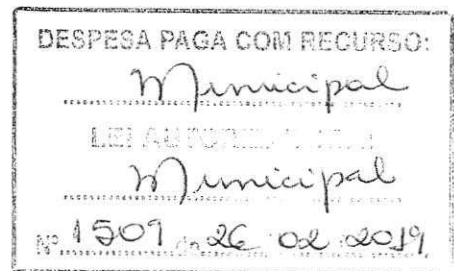 DESPESA PAGA COM RECURSO:
Municipal
LEI
Municipal
Nº 1509 de 26 02 2019